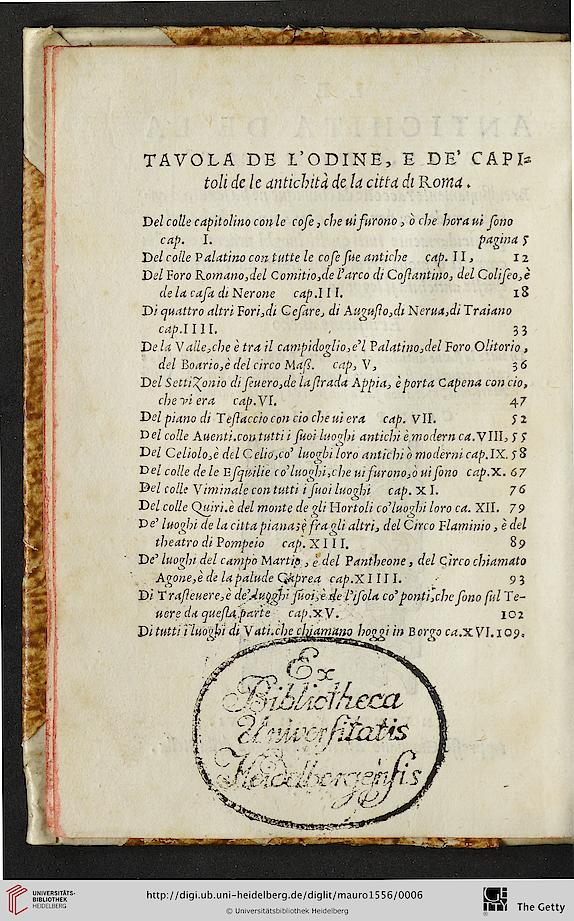 TAVOLA DE L'ODINE, E DE' CAPI=
toli de le antichità de la citta di Roma.
Del colle capitolino con le coſe, che ui furono, ò che hora ui ſono
cap. I. pagina 5
Del colle Palatino con tutte le coſe ſue antiche cap. II, 12
Del Foro Romano, del Comitio, de l'arco di Coſtantino, del Coliſeo, è
de la caſa di Nerone cap. III. 18
Di quattro altri Fori, di Ceſare, di Auguſto, di Nerua, di Traiano
cap. IIII. 33
De la Valle, che è tra il campidoglio, e'l Palatino, del Foro Olitorio,
del Boario, è del circo Maß. cap, V, 36
Del SettiZonio di ſeuero, de la ſtrada Appia, è porta Capena con cio,
che vi era cap. VI. 47
Del piano di Teſtaccio con cio che ui era cap. VII. 52
Del colle Auenti. con tutti i ſuoi luoghi antichi è modern ca. VIII, 55
Del Celiolo, è del Celio, co' luoghi loro antichi ò moderni cap. IX. 58
Del colle de le Eſquilie co' luoghi, che ui furono, ò ui ſono cap. X. 67
Del colle Viminale con tutti i ſuoi luoghi cap. XI. 76
Del colle Quiri. è del monte de gli Hortoli co' luoghi loro ca. XII. 79
De' luoghi de la citta piana, è fra gli altri, del Circo Flaminio, è del
theatro di Pompeio cap. XIII. 89
De' luoghi del campo Martio, è del Pantheone, del Circo chiamato
Agone, è de la palude Caprea cap. XIIII. 93
Di Traſteuere, è de' luoghi ſuoi, è de l'iſola co' ponti, che ſono ſul Te-
uere da queſta parte cap. XV. 102
Di tutti i luoghi di Vati. che chiamano hoggi in Borgo ca. XVI. 109.
Ex
Bibliotheca
Universitatis
Heidelbergensis
UNIVERSITÄTS-
BIBLIOTHEK
HEIDELBERG
http://digi.ub.uni-heidelberg.de/diglit/mauro1556/0006
© Universitätsbibliothek Heidelberg
The Getty